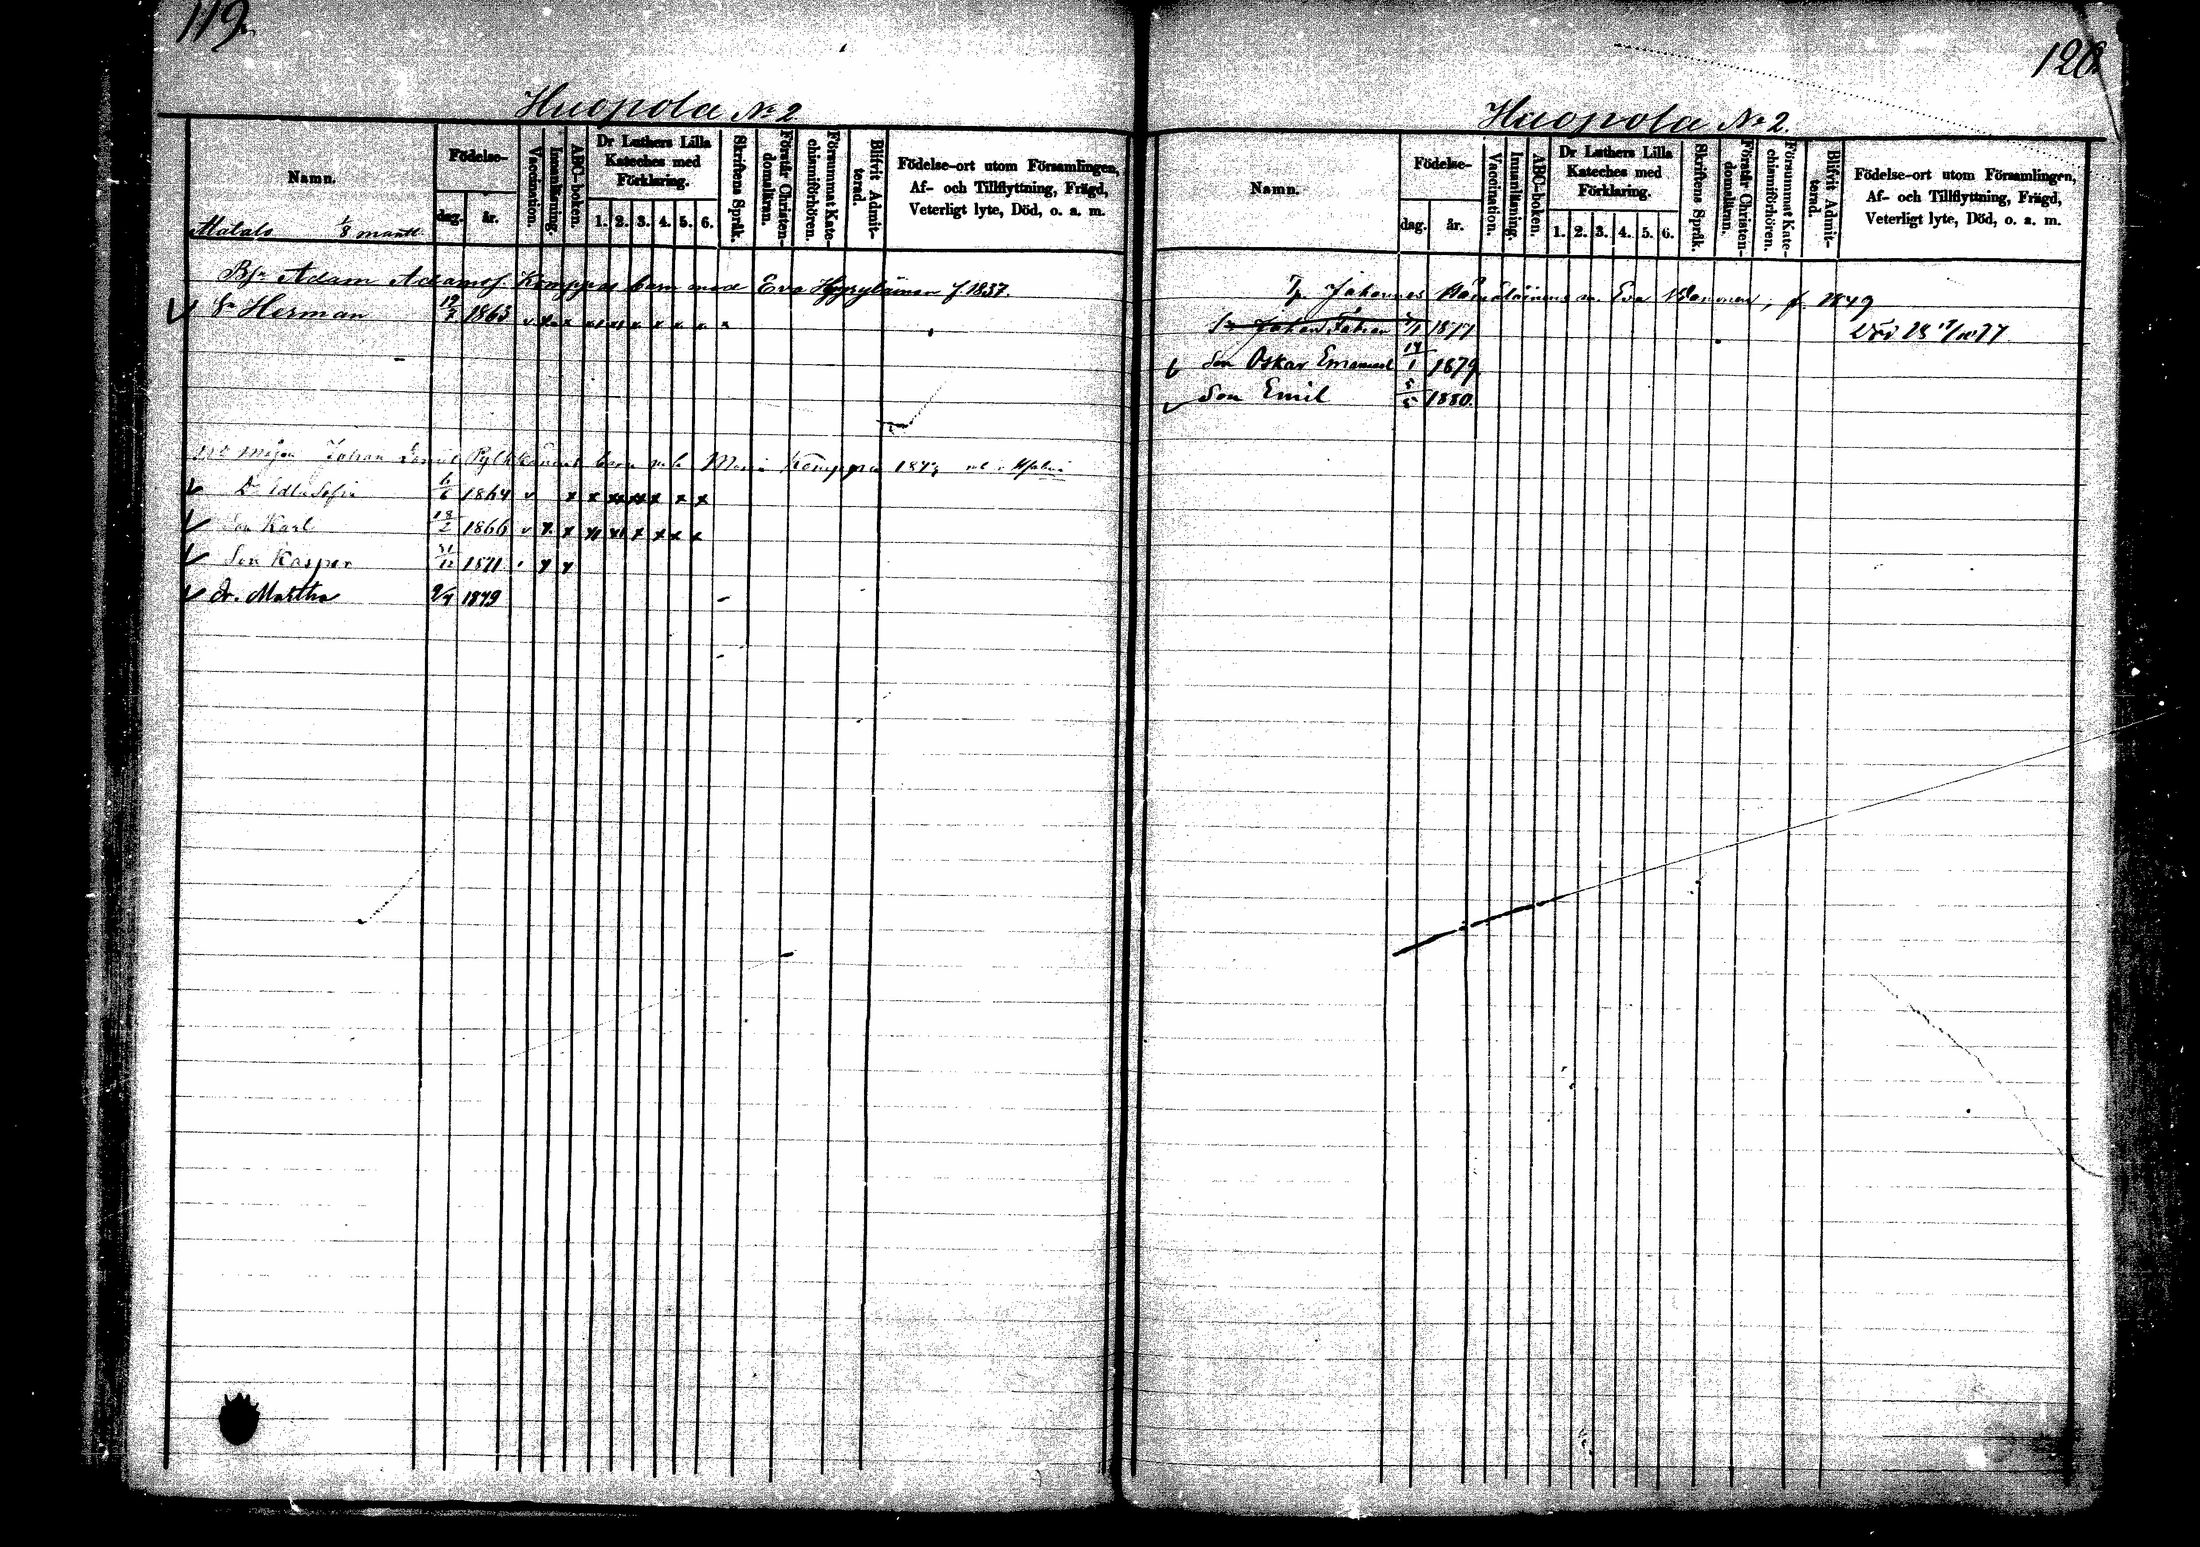 119.
Huopola No 2
Namn.
Födelse-
dag.
år.
Vaccination.
Innanläsning.
ABC-boken.
Dr Luthers Lilla
Kateches med
Förklaring.
1. 2. 3. 4. 5. 6.
Skriftens Språk.
Förstår Christen-
domsläran.
Försummat Kate-
chismiförhören.
Blifvit Admit-
terad.
Födelse-ort utom Församlingen,
Af- och Tillflyttning, Frägd,
Veterligt lyte, Död, o. a. m.
1/8 mantl
Adam Adamsf. Kemppas barn med Eva f 1837.
Sn Herman 1863
Johan barn Kemppa
D. Edla Sofia 6/6 1864
Son Karl 18/2 1866
Son Kasper 1871
Dr. Martha 1879
120
Huopola No 2.
Namn.
Födelse-
dag.
år.
Vaccination.
Innanläsning.
ABC-boken.
Dr Luthers Lilla
Kateches med
Förklaring.
1. 2. 3. 4. 5. 6.
Skriftens Språk.
Förstår Christen-
domsläran.
Försummat Kate-
chismiförhören.
Blifvit Admit-
terad.
Födelse-ort utom Församlingen,
Af- och Tillflyttning, Frägd,
Veterligt lyte, Död, o. a. m.
Johannes Eva f. 1849
Johan 1877 Död
Son Oskar Emanuel 1879
Son Emil 1880.